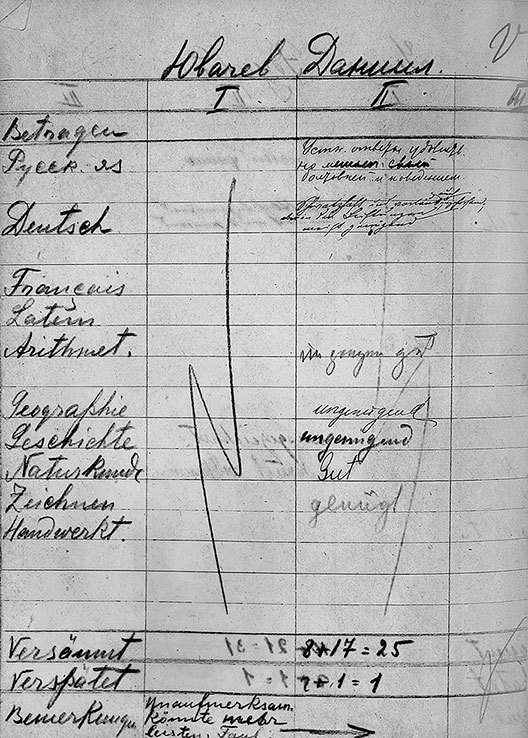 Ювачев Даниил.
I II III
Betragen
Русск. яз Устн. ответы удовлетв.
но мешает своей
болтовней и поведением.
Deutsch
Français
Latein
Arithmet. im ganzen gut
Geographie ungenügend
Geschichte ungenügend
Naturkunde Gut
Zeichnen genügt
Handwerkt.
Versäumt 8+17=25
Verspätet 1=1
Bemerkungen unaufmerksam.
könnte mehr
leisten. Faul.